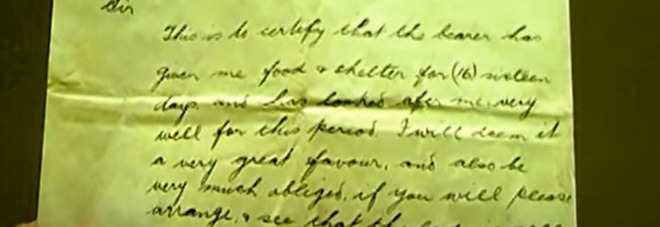 Sir
This is to certify that the bearer has
given me food & shelter for (16) sixteen
days, and has looked after me very
well for this period. I will deem it
a very great favour, and also be
very much obliged, if you will please
arrange, & see that the